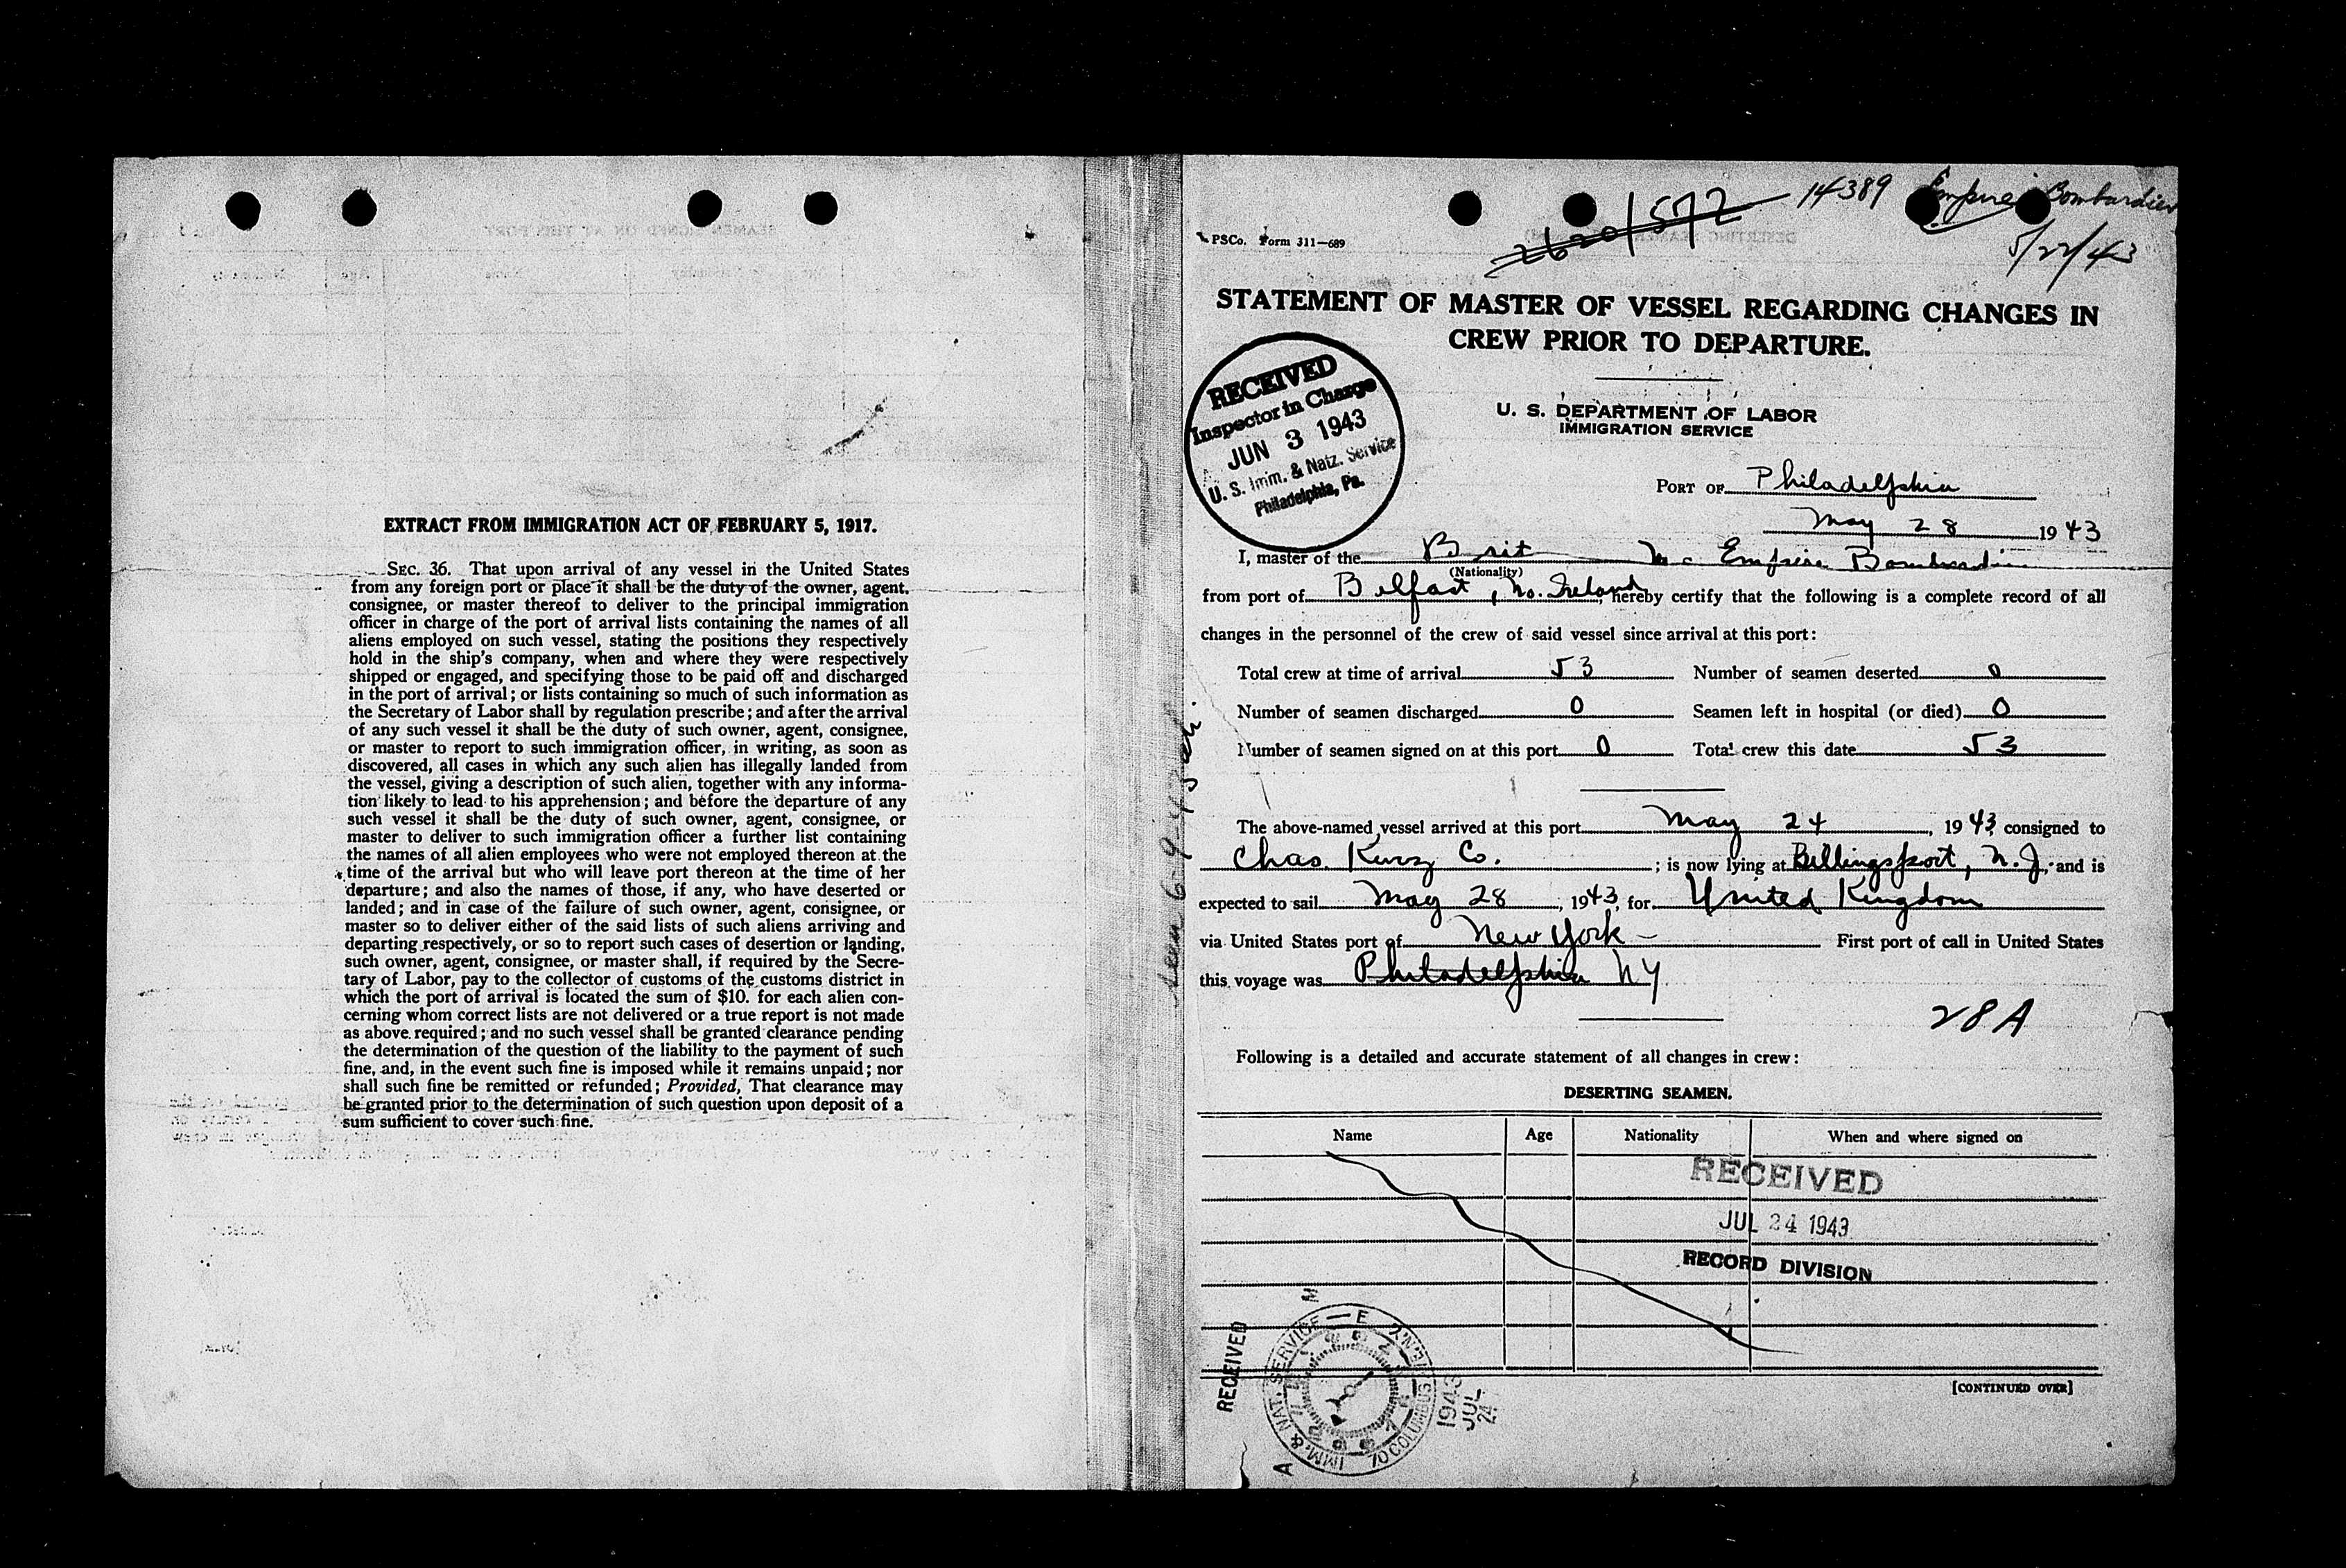 EXTRACT FROM IMMIGRATION ACT OF FEBRUARY 5, 1917.
SEC. 36. That upon arrival of any vessel in the United States
from any foreign port or place it shall be the duty of the owner, agent,
consignee, or master thereof to deliver to the principal immigration
officer in charge of the port of arrival lists containing the names of all
aliens employed on such vessel, stating the positions they respectively
hold in the ship's company, when and where they were respectively
shipped or engaged, and specifying those to be paid off and discharged
in the port of arrival; or lists containing so much of such information as
the Secretary of Labor shall by regulation prescribe; and after the arrival
of any such vessel it shall be the duty of such owner, agent, consignee,
or master to report to such immigration officer, in writing, as soon as
discovered, all cases in which any such alien has illegally landed from
the vessel, giving a description of such alien, together with any informa-
tion likely to lead to his apprehension; and before the departure of any
such vessel it shall be the duty of such owner, agent, consignee, or
master to deliver to such immigration officer a further list containing
the names of all alien employees who were not employed thereon at the
time of the arrival but who will leave port thereon at the time of her
departure; and also the names of those, if any, who have deserted or
landed; and in case of the failure of such owner, agent, consignee, or
master so to deliver either of the said lists of such aliens arriving and
departing respectively, or so to report such cases of desertion or landing,
such owner, agent, consignee, or master shall, if required by the Secre-
tary of Labor, pay to the collector of customs of the customs district in
which the port of arrival is located the sum of $10. for each alien con-
cerning whom correct lists are not delivered or a true report is not made
as above required; and no such vessel shall be granted clearance pending
the determination of the question of the liability to the payment of such
fine, and, in the event such fine is imposed while it remains unpaid; nor
shall such fine be remitted or refunded; Provided, That clearance may
be granted prior to the determination of such question upon deposit of a
sum sufficient to cover such fine.
2620/572 14389 Empire Bombardier
5/22/43
PSCo. Form 311—689
STATEMENT OF MASTER OF VESSEL REGARDING CHANGES IN
CREW PRIOR TO DEPARTURE.
RECEIVED
Inspector in Charge
JUN 3 1943
U. S. Imm. & Natz. Service
Philadelphia, Pa.
U. S. DEPARTMENT OF LABOR
IMMIGRATION SERVICE
PORT OF Philadelphia
May 28 1943
I, master of the Brit Empire Bombardier
(Nationality)
from port of Belfast, No. Ireland, hereby certify that the following is a complete record of all
changes in the personnel of the crew of said vessel since arrival at this port:
Total crew at time of arrival 53 Number of seamen deserted 0
Number of seamen discharged 0 Seamen left in hospital (or died) 0
Number of seamen signed on at this port 0 Total crew this date 53
The above-named vessel arrived at this port May 24, 1943, consigned to
Chas. Kurz Co.; is now lying at Billingsport, N.J., and is
expected to sail May 28, 1943, for United Kingdom
via United States port of New York — First port of call in United States
this voyage was Philadelphia NY
28A
Following is a detailed and accurate statement of all changes in crew:
DESERTING SEAMEN.
Name Age Nationality When and where signed on
RECEIVED
JUL 24 1943
RECORD DIVISION
[CONTINUED OVER]
RECEIVED
IMM. & NAT. SERVICE
70 COLUMBUS
1943
JUL
24
A M